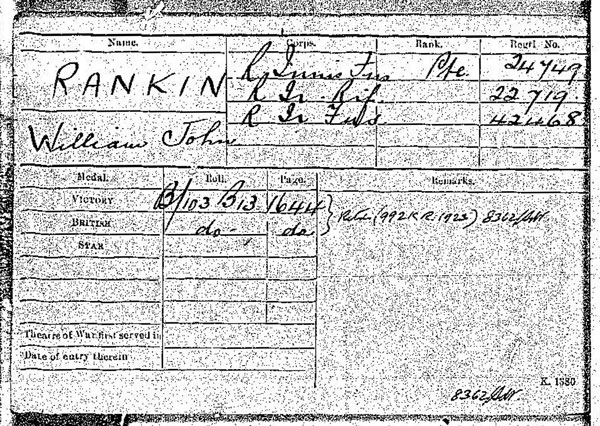 Name. Corps. Rank. Regtl. No.
RANKIN R Innis Fus Pte. 24749
R Ir. Rif. 22719
William John R Ir Fus 42468
Medal. Roll. Page. Remarks.
VICTORY B/103 B13 1644
BRITISH do - do (992 K R 1923) 8362/
STAR
Theatre of War first served in
Date of entry therein
K. 1380
8362/